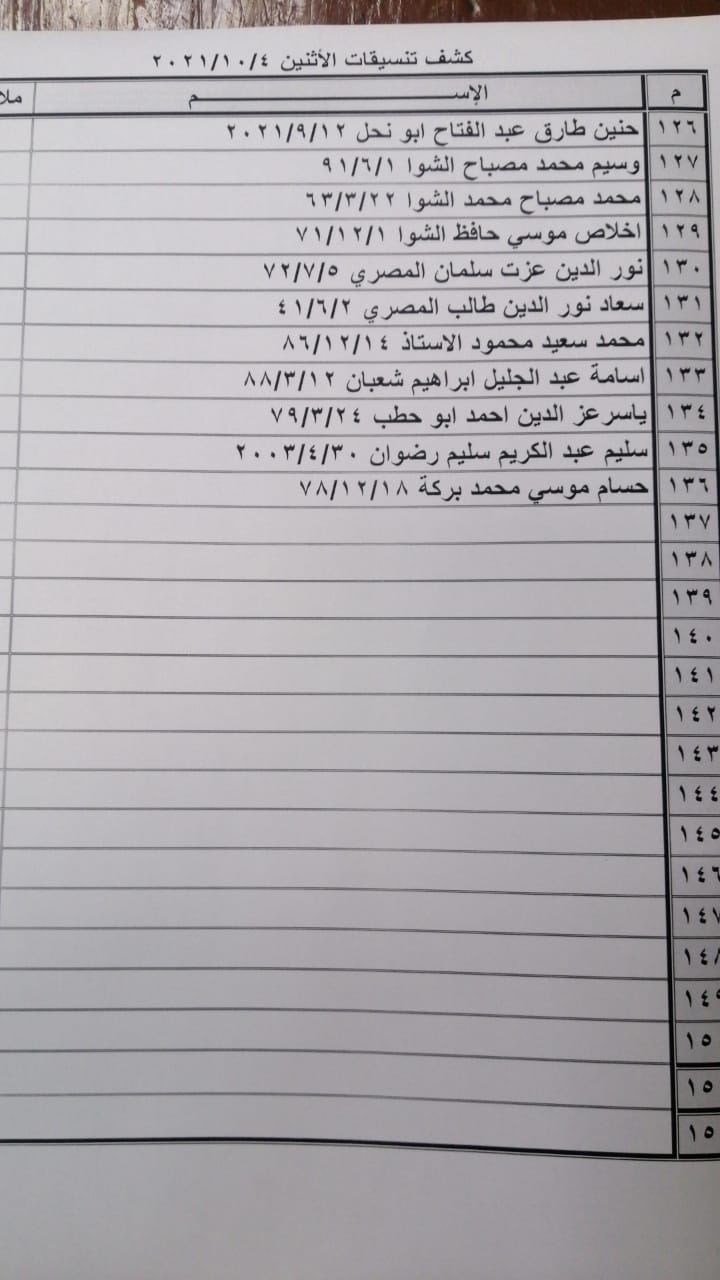 كشف تنسيقات الأثنين ٢٠٢١/١٠/٤
م الإســـــــم ملا
١٢٦ حنين طارق عبد الفتاح ابو نحل ٢٠٢١/٩/١٢
١٢٧ وسيم محمد مصباح الشوا ٩١/٦/١
١٢٨ محمد مصباح محمد الشوا ٦٣/٣/٢٢
١٢٩ اخلاص موسي حافظ الشوا ٧١/١٢/١
١٣٠ نور الدين عزت سلمان المصري ٧٢/٧/٥
١٣١ سعاد نور الدين طالب المصري ٤١/٦/٢
١٣٢ محمد سعيد محمود الاستاذ ٨٦/١٢/١٤
١٣٣ اسامة عبد الجليل ابراهيم شعبان ٨٨/٣/١٢
١٣٤ ياسرعز الدين احمد ابو حطب ٧٩/٣/٢٤
١٣٥ سليم عبد الكريم سليم رضوان ٢٠٠٣/٤/٣٠
١٣٦ حسام موسي محمد بركة ٧٨/١٢/١٨
١٣٧
١٣٨
١٣٩
١٤٠
١٤١
١٤٢
١٤٣
١٤٤
١٤٥
١٤٦
١٤٧
١٤٨
١٤٩
١٥
١٥
١٥